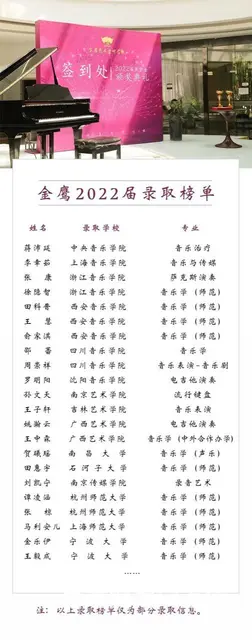 签到处
2022
颁奖典礼
金鹰2022届录取榜单
姓名 录取学校 专业
蒋沛延 中央音乐学院 音乐治疗
李幸茹 上海音乐学院 音乐与传媒
张康 浙江音乐学院 萨克斯演奏
徐德智 浙江音乐学院 音乐学（师范）
田科普 西安音乐学院 音乐学（师范）
王慧 西安音乐学院 音乐学（师范）
俞家淇 西安音乐学院 音乐学（师范）
邵蕾 四川音乐学院 音乐学
周景祥 四川音乐学院 音乐表演-音乐剧
罗明阳 沈阳音乐学院 电吉他演奏
孙文天 南京艺术学院 流行键盘
王子轩 吉林艺术学院 音乐表演
姚瀚云 广西艺术学院 电吉他演奏
王中森 广西艺术学院 音乐学（中外合作办学）
贺曦瑶 南昌大学 音乐学（声乐）
田惠宇 石河子大学 音乐学（师范）
刘凯宁 南京传媒学院 录音艺术
谭凌涵 杭州师范大学 音乐学（师范）
张椋 杭州师范大学 音乐学（师范）
马利安儿 上海师范大学 音乐学（师范）
金乐伊 宁波大学 音乐学（师范）
王毅成 宁波大学 音乐学（师范）
……
注：以上录取榜单仅为部分录取信息。